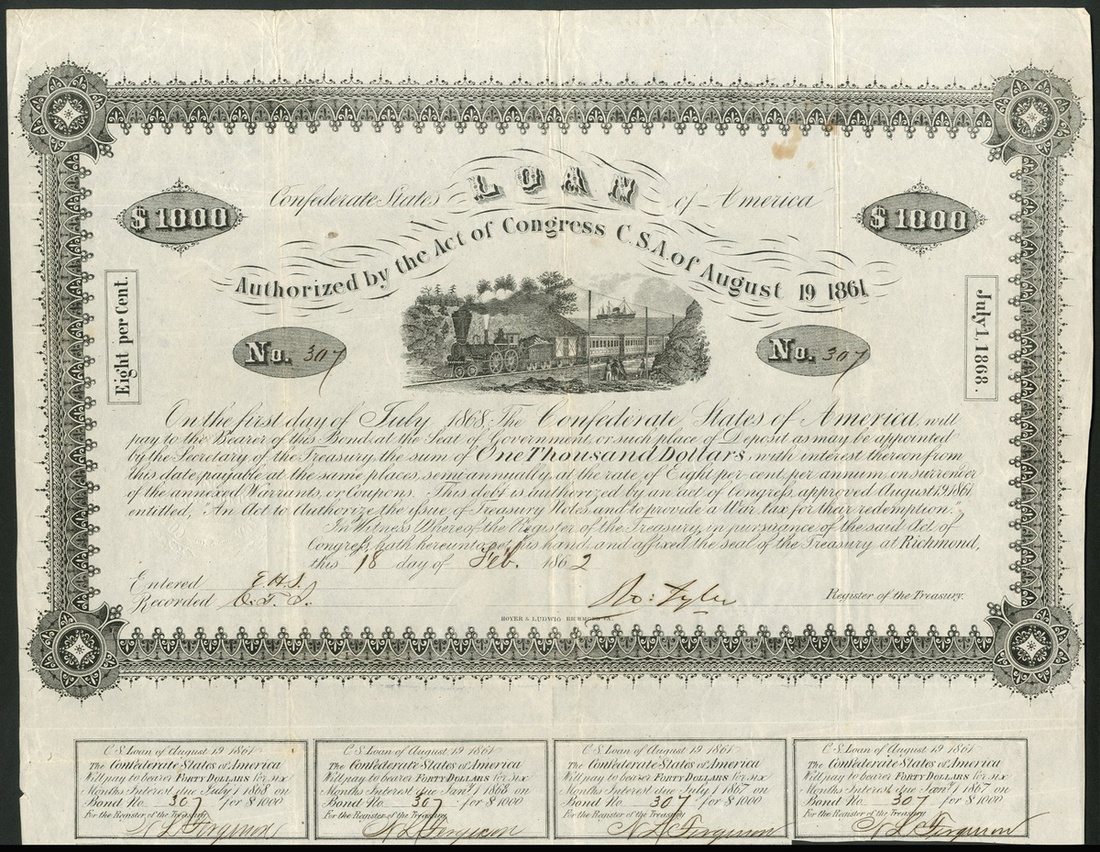 Confederate States LOAN of America
Authorized by the Act of Congress C.S.A. of August 19 1861
$1000
$1000
Eight per Cent.
July 1, 1868.
No. 307
No. 307
On the first day of July 1868, The Confederate States of America, will
pay to the Bearer of this Bond, at the Seat of Government, or such place of Deposit as may be appointed
by the Secretary of the Treasury, the sum of One Thousand Dollars, with interest thereon from
this date, payable at the same place, semi-annually, at the rate of Eight per cent. per annum, on surrender
of the annexed Warrants, or Coupons. This debt is authorized by an act of Congress, approved August 19, 1861
entitled, "An Act to Authorize the issue of Treasury Notes, and to provide a War tax for their redemption."
In Witness Whereof, the Register of the Treasury, in pursuance of the said Act of
Congress, hath hereunto set his hand, and affixed the seal of the Treasury, at Richmond,
this 18 day of Feb. 1862
Entered E.H.S.
Recorded
Ro: Tyler Register of the Treasury.
HOYER & LUDWIG RICHMOND VA.
C. S. Loan of August 19 1861
The Confederate States of America
Will pay to bearer FORTY DOLLARS for six
Months Interest due July 1 1868 on
Bond No. 307 for $1000
For the Register of the Treasury
N L Ferguson
C. S. Loan of August 19 1861
The Confederate States of America
Will pay to bearer FORTY DOLLARS for six
Months Interest due Jany. 1 1868 on
Bond No. 307 for $1000
For the Register of the Treasury
N L Ferguson
C. S. Loan of August 19 1861
The Confederate States of America
Will pay to bearer FORTY DOLLARS for six
Months Interest due July 1 1867 on
Bond No. 307 for $1000
For the Register of the Treasury
N L Ferguson
C. S. Loan of August 19 1861
The Confederate States of America
Will pay to bearer FORTY DOLLARS for six
Months Interest due Jany. 1 1867 on
Bond No. 307 for $1000
For the Register of the Treasury
N L Ferguson